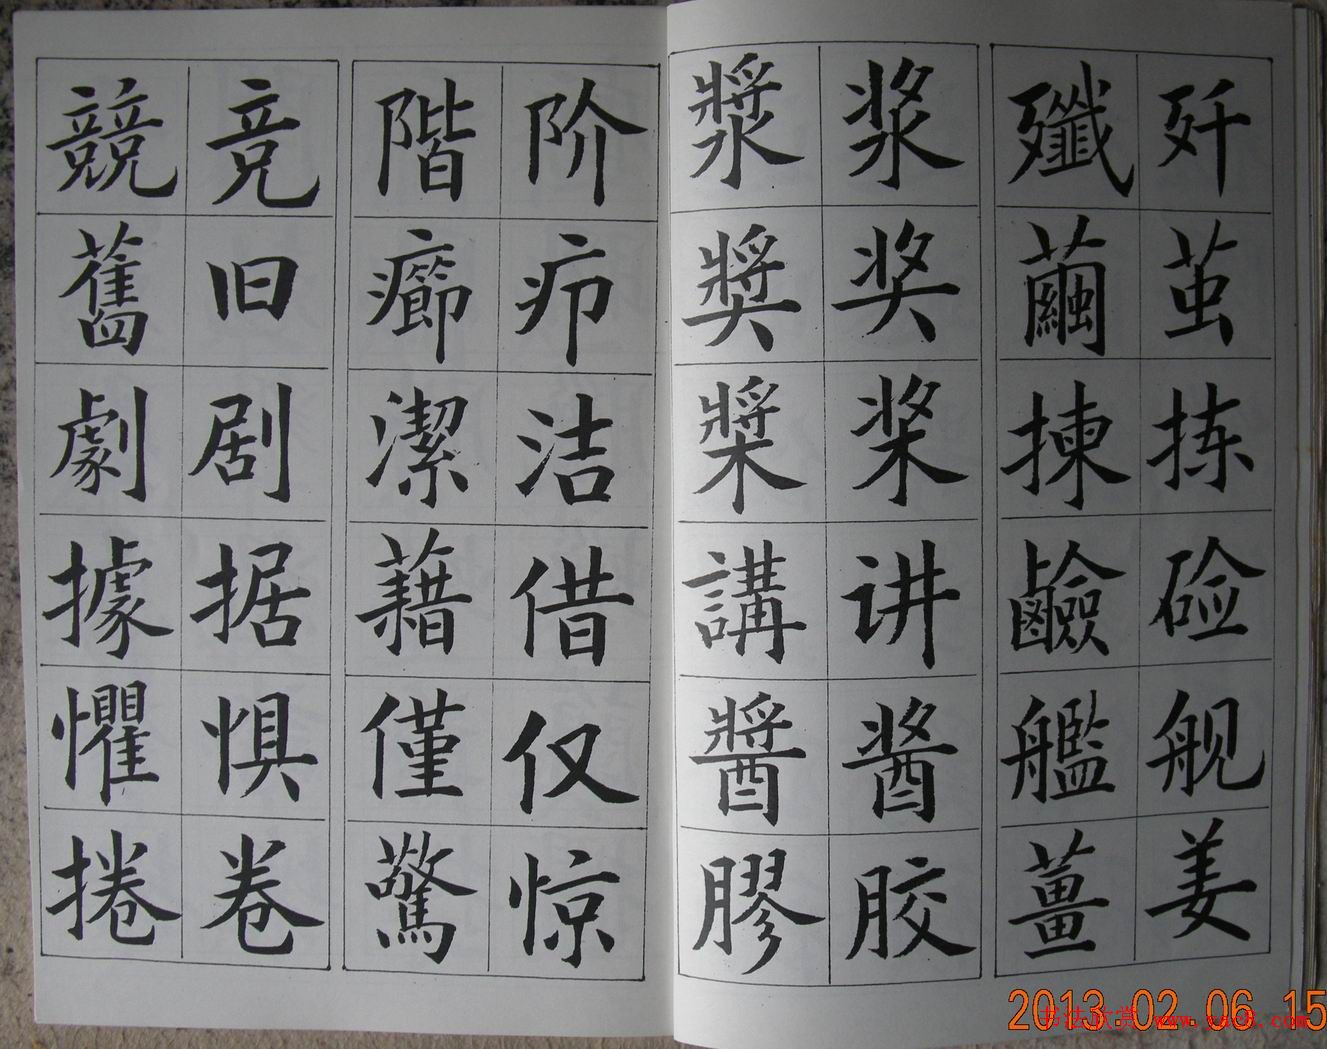 歼茧拣硷舰姜
殲繭揀鹼艦薑
浆奖桨讲酱胶
漿獎槳講醬膠
阶疖洁借仅惊
階癤潔藉僅驚
竞旧剧据惧卷
競舊劇據懼捲
2013.02.06 15
书法欣赏 www.yac8.com